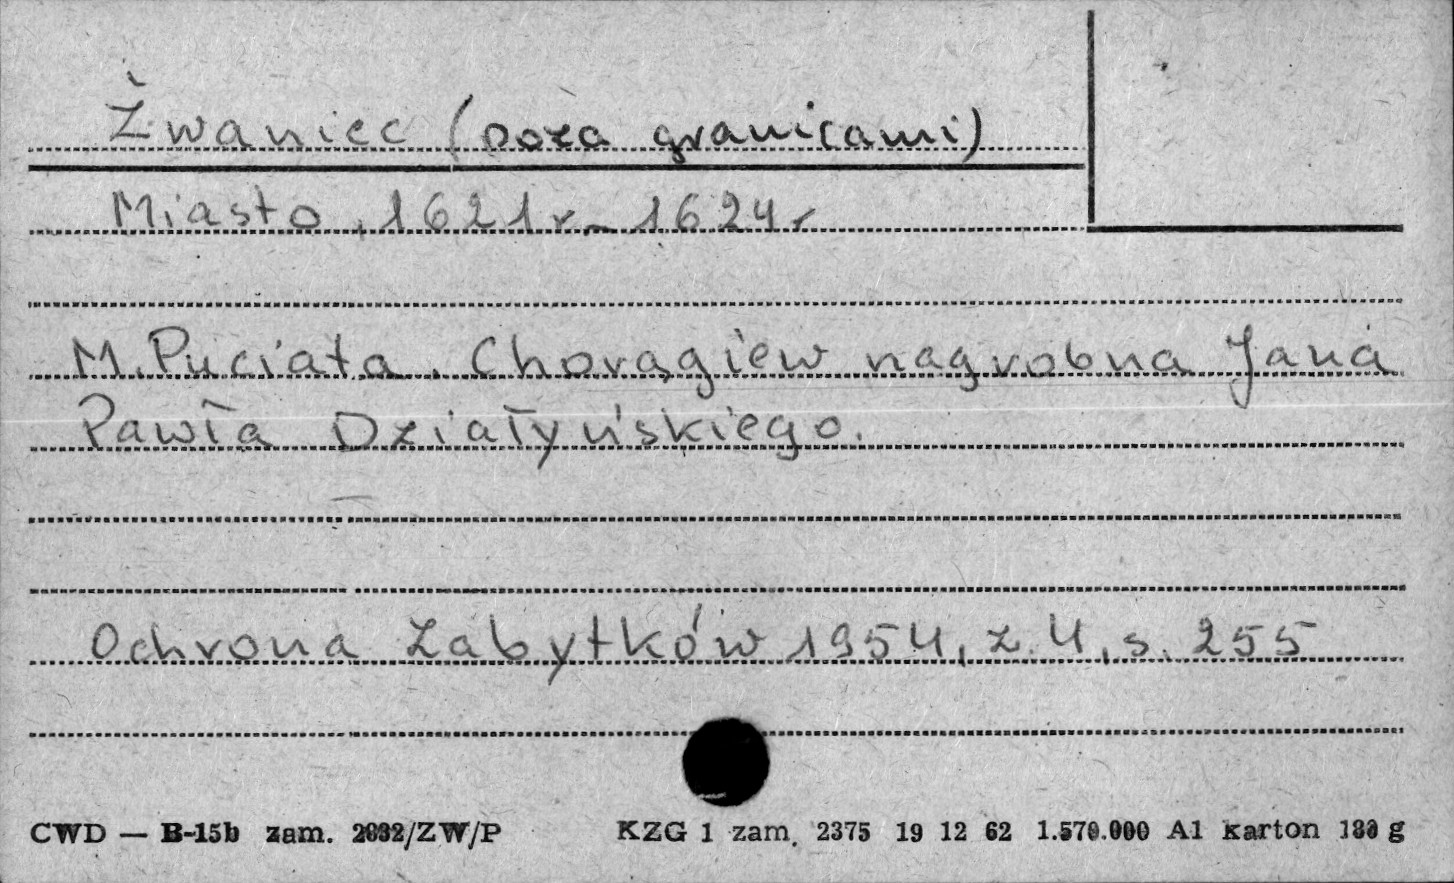 Żwaniec (poza granicami)
Miasto, 1621 r – 1624 r
M. Puciata. Chorągiew nagrobna Jana
Pawła Działyńskiego.
Ochrona Zabytków 1954, z. 4, s. 255
CWD — B-15b zam. 2032/ZW/P KZG 1 zam. 2375 19 12 62 1.570.000 A1 karton 180 g